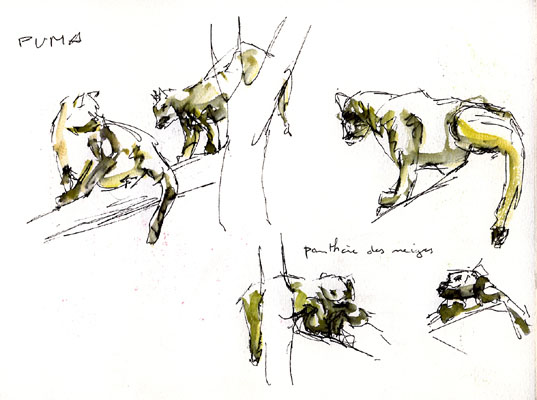 PUMA
panthère des neiges